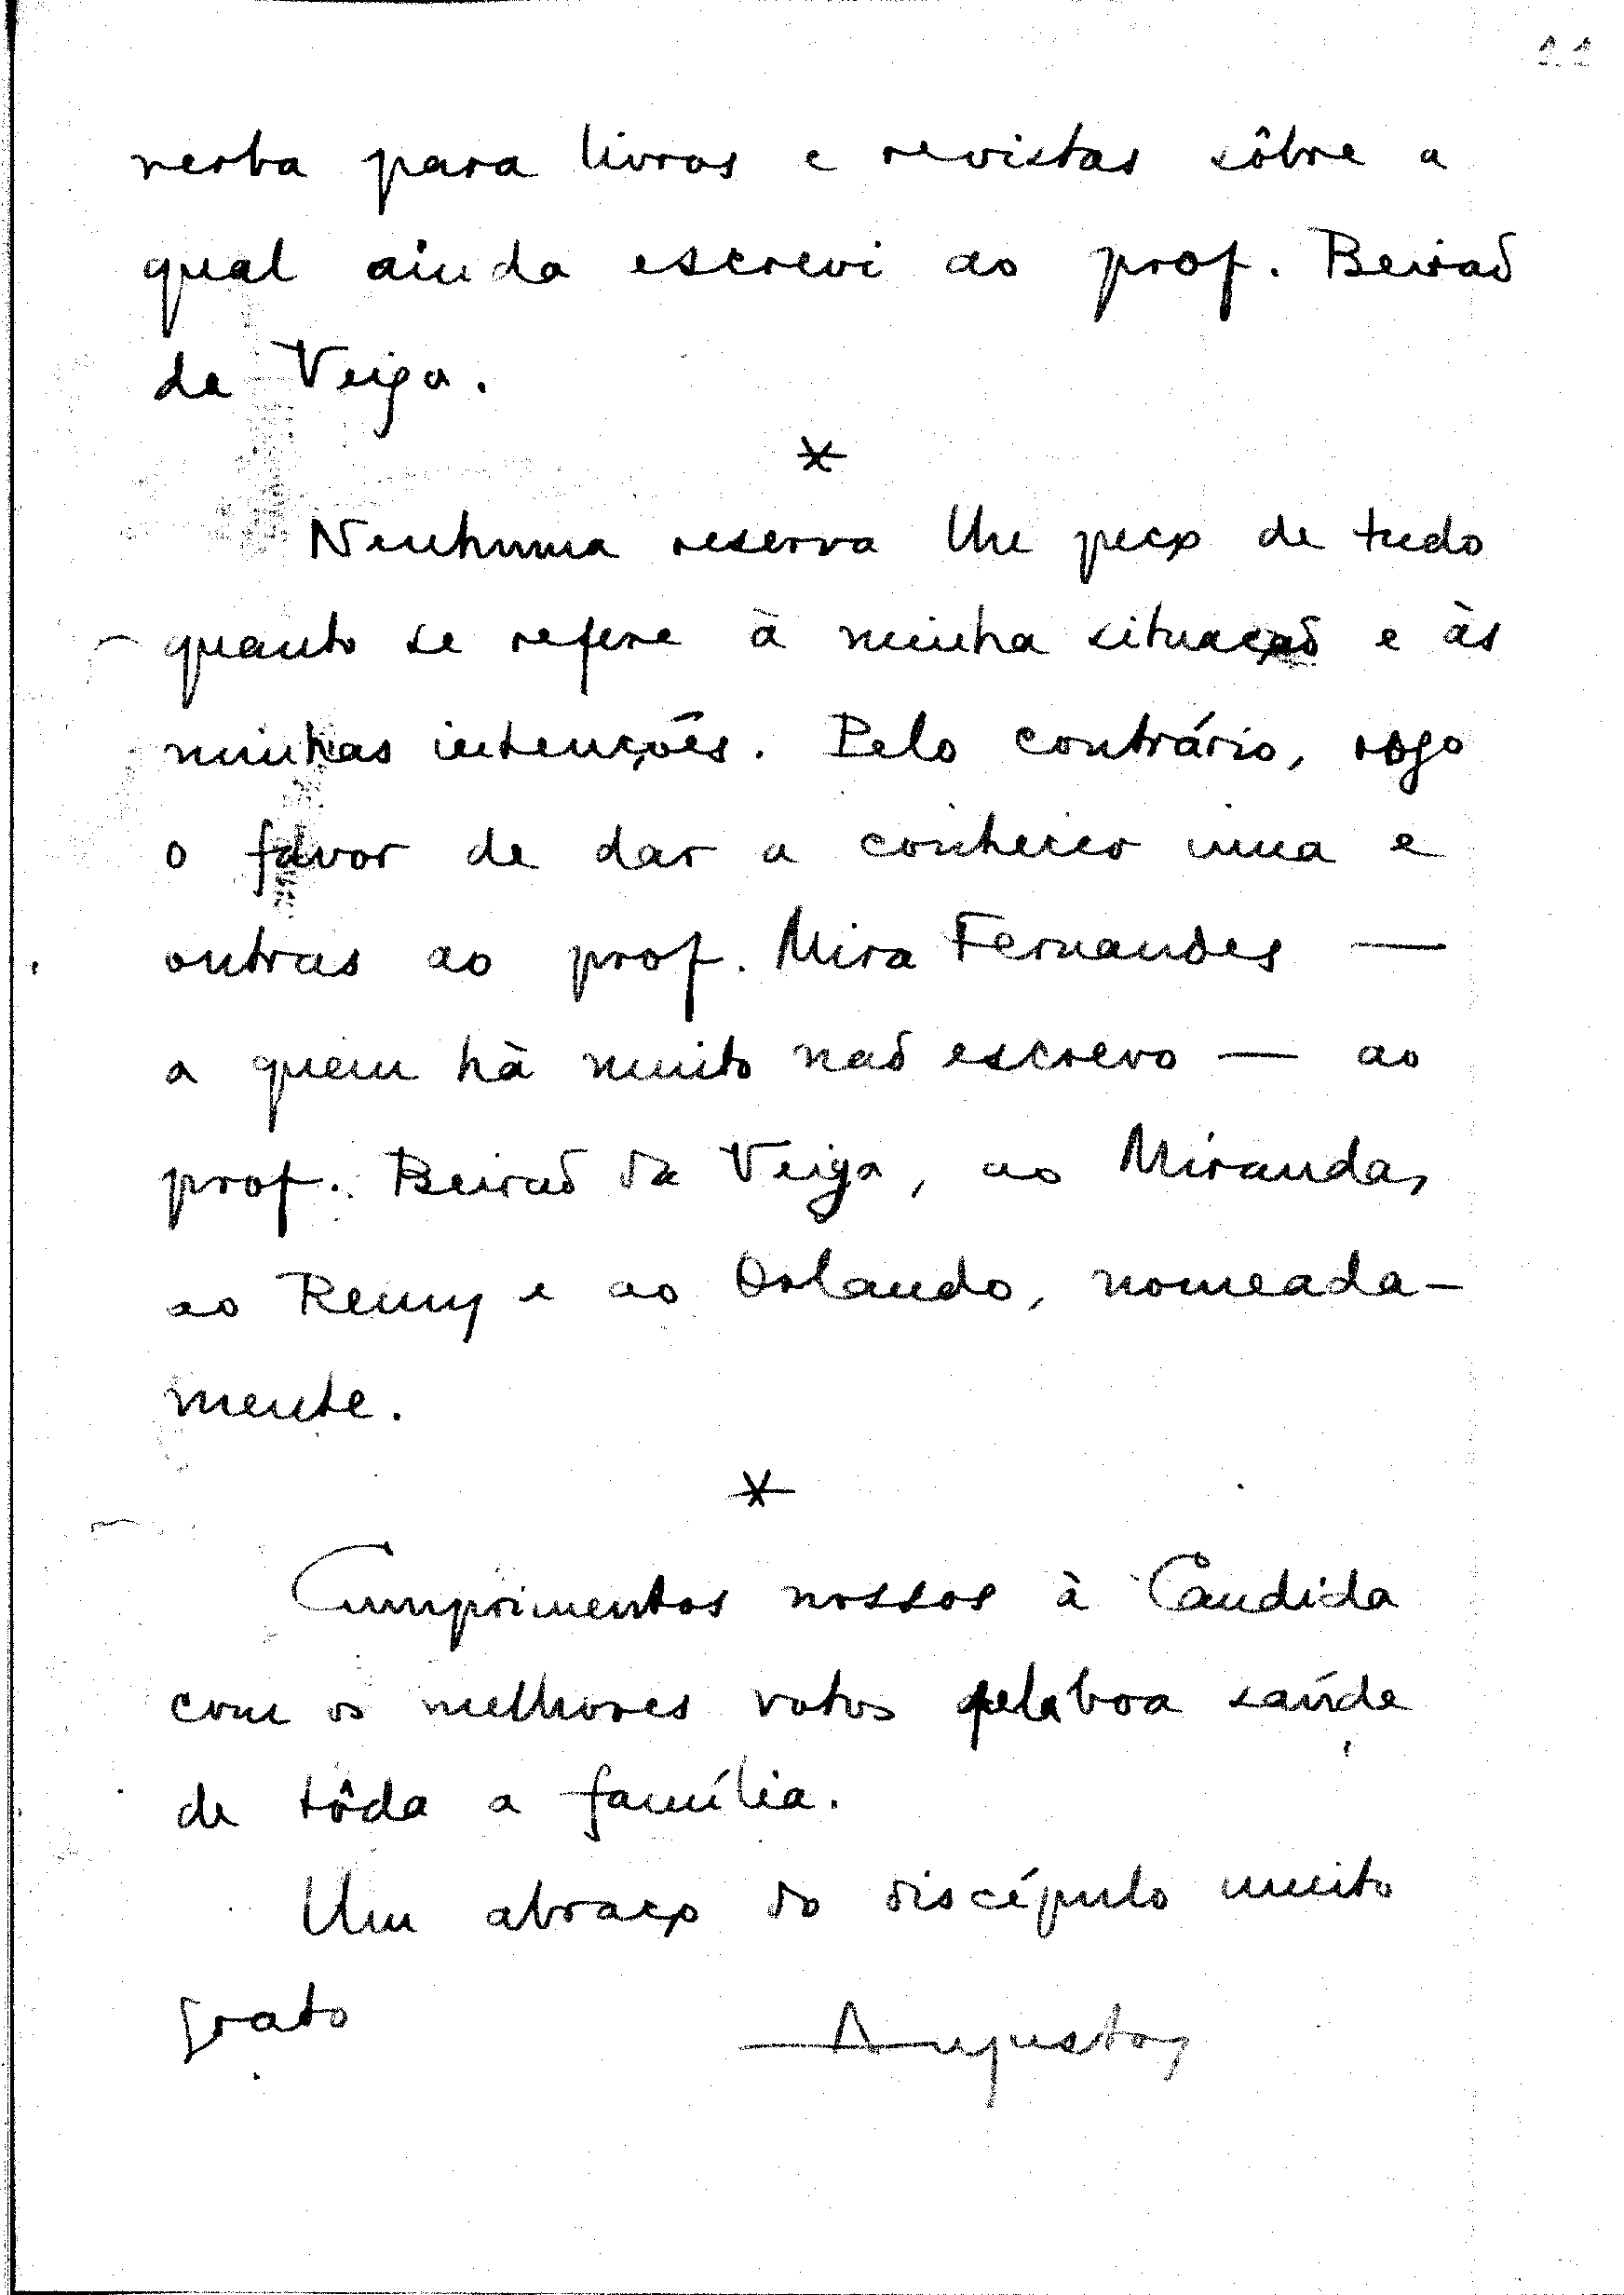 11
verba para livros e revistas sôbre a
qual ainda escrevi ao prof. Beirão
da Veiga.
*
Nenhuma reserva lhe peço de tudo
quanto se refere à minha situação e às
minhas intenções. Pelo contrário, rogo
o favor de dar a conhecer uma e
outras ao prof. Mira Fernandes —
a quem hà muito não escrevo — ao
prof. Beirão da Veiga, ao Miranda,
ao Remy e ao Orlando, nomeada-
mente.
*
Cumprimentos nossos à Candida
com os melhores votos pela boa saúde
de tôda a família.
Um abraço do discípulo muito
grato Augusto